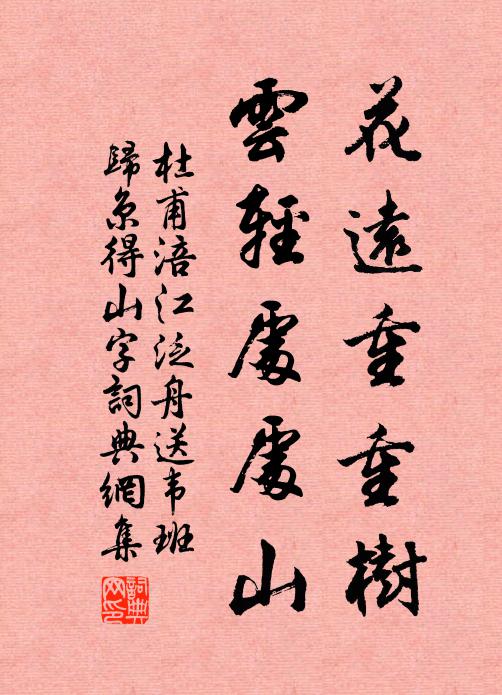 花遠重重樹
雲輕處處山
杜甫涪江泛舟送韦班
歸京得山字詞典網集
詞典
网印